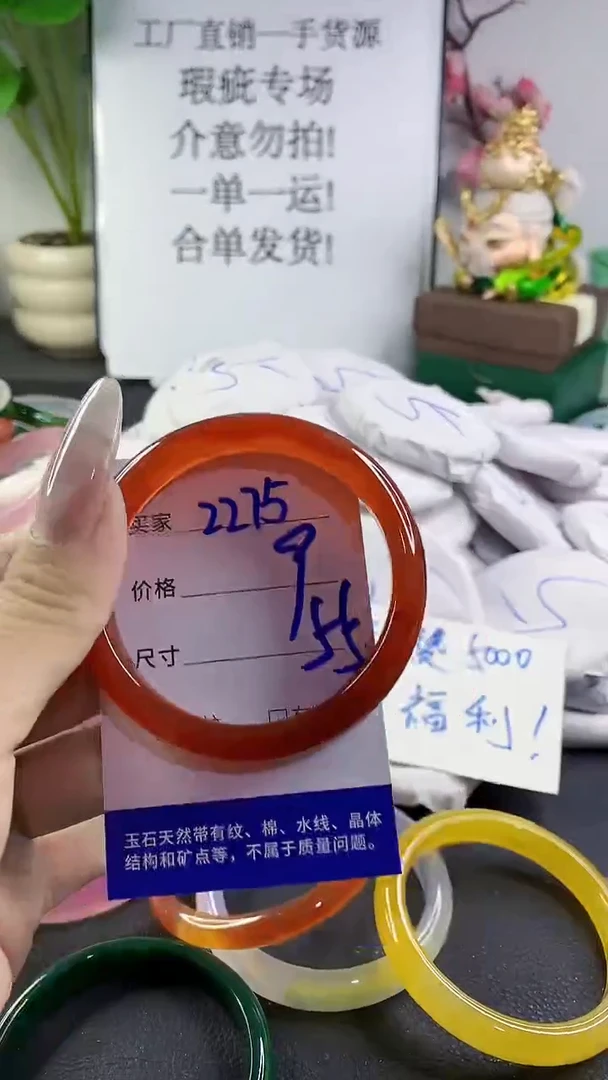 工厂直销一手货源
瑕疵专场
介意勿拍!
一单一运!
合单发货!
买家 2275
价格 9
尺寸 55
玉石天然带有纹、棉、水线、晶体
结构和矿点等，不属于质量问题。
5000
福利!